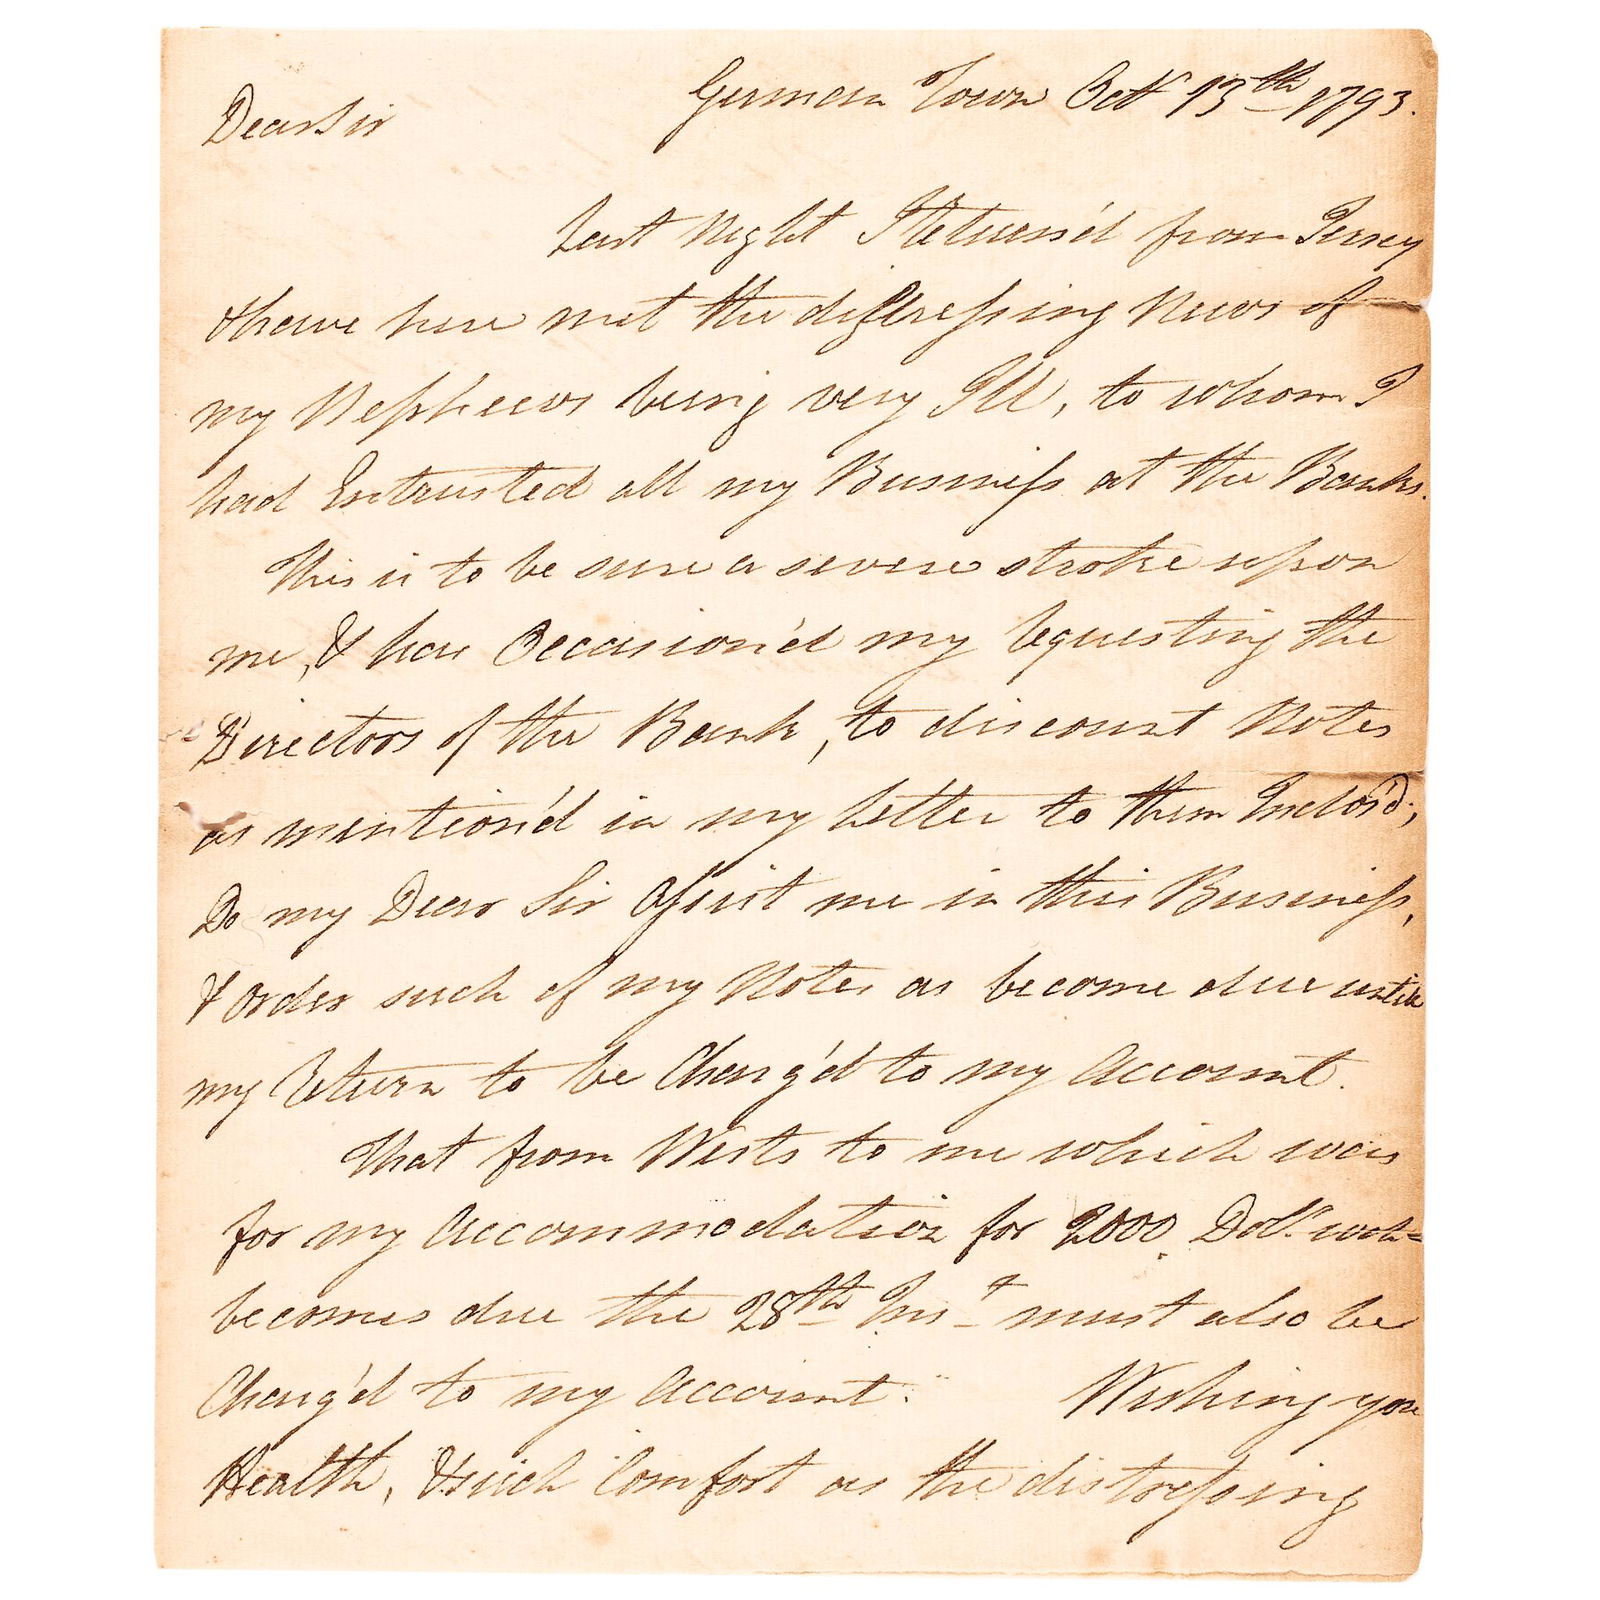 German Town Oct 13th 1793.
Dear Sir
Last Night I Return'd from Jersey
& have here met the distressing News of
my Nephews being very Ill, to whom I
had Entrusted all my Business at the Banks.
This is to be sure a severe stroke upon
me, & has Occasion'd my requesting the
Directors of the Bank, to discount Notes
as mention'd in my Letter to them Inclos'd;
Do my Dear Sir Assist me in this Business,
& order such of my Notes as become due untill
my Return to be Charg'd to my Account.
That from Wests to me which was
for my Accommodation for 2000 Dolls. wch
becomes due the 28th Inst must also be
Charg'd to my Account. Wishing you
Health, & such Comfort as the distressing